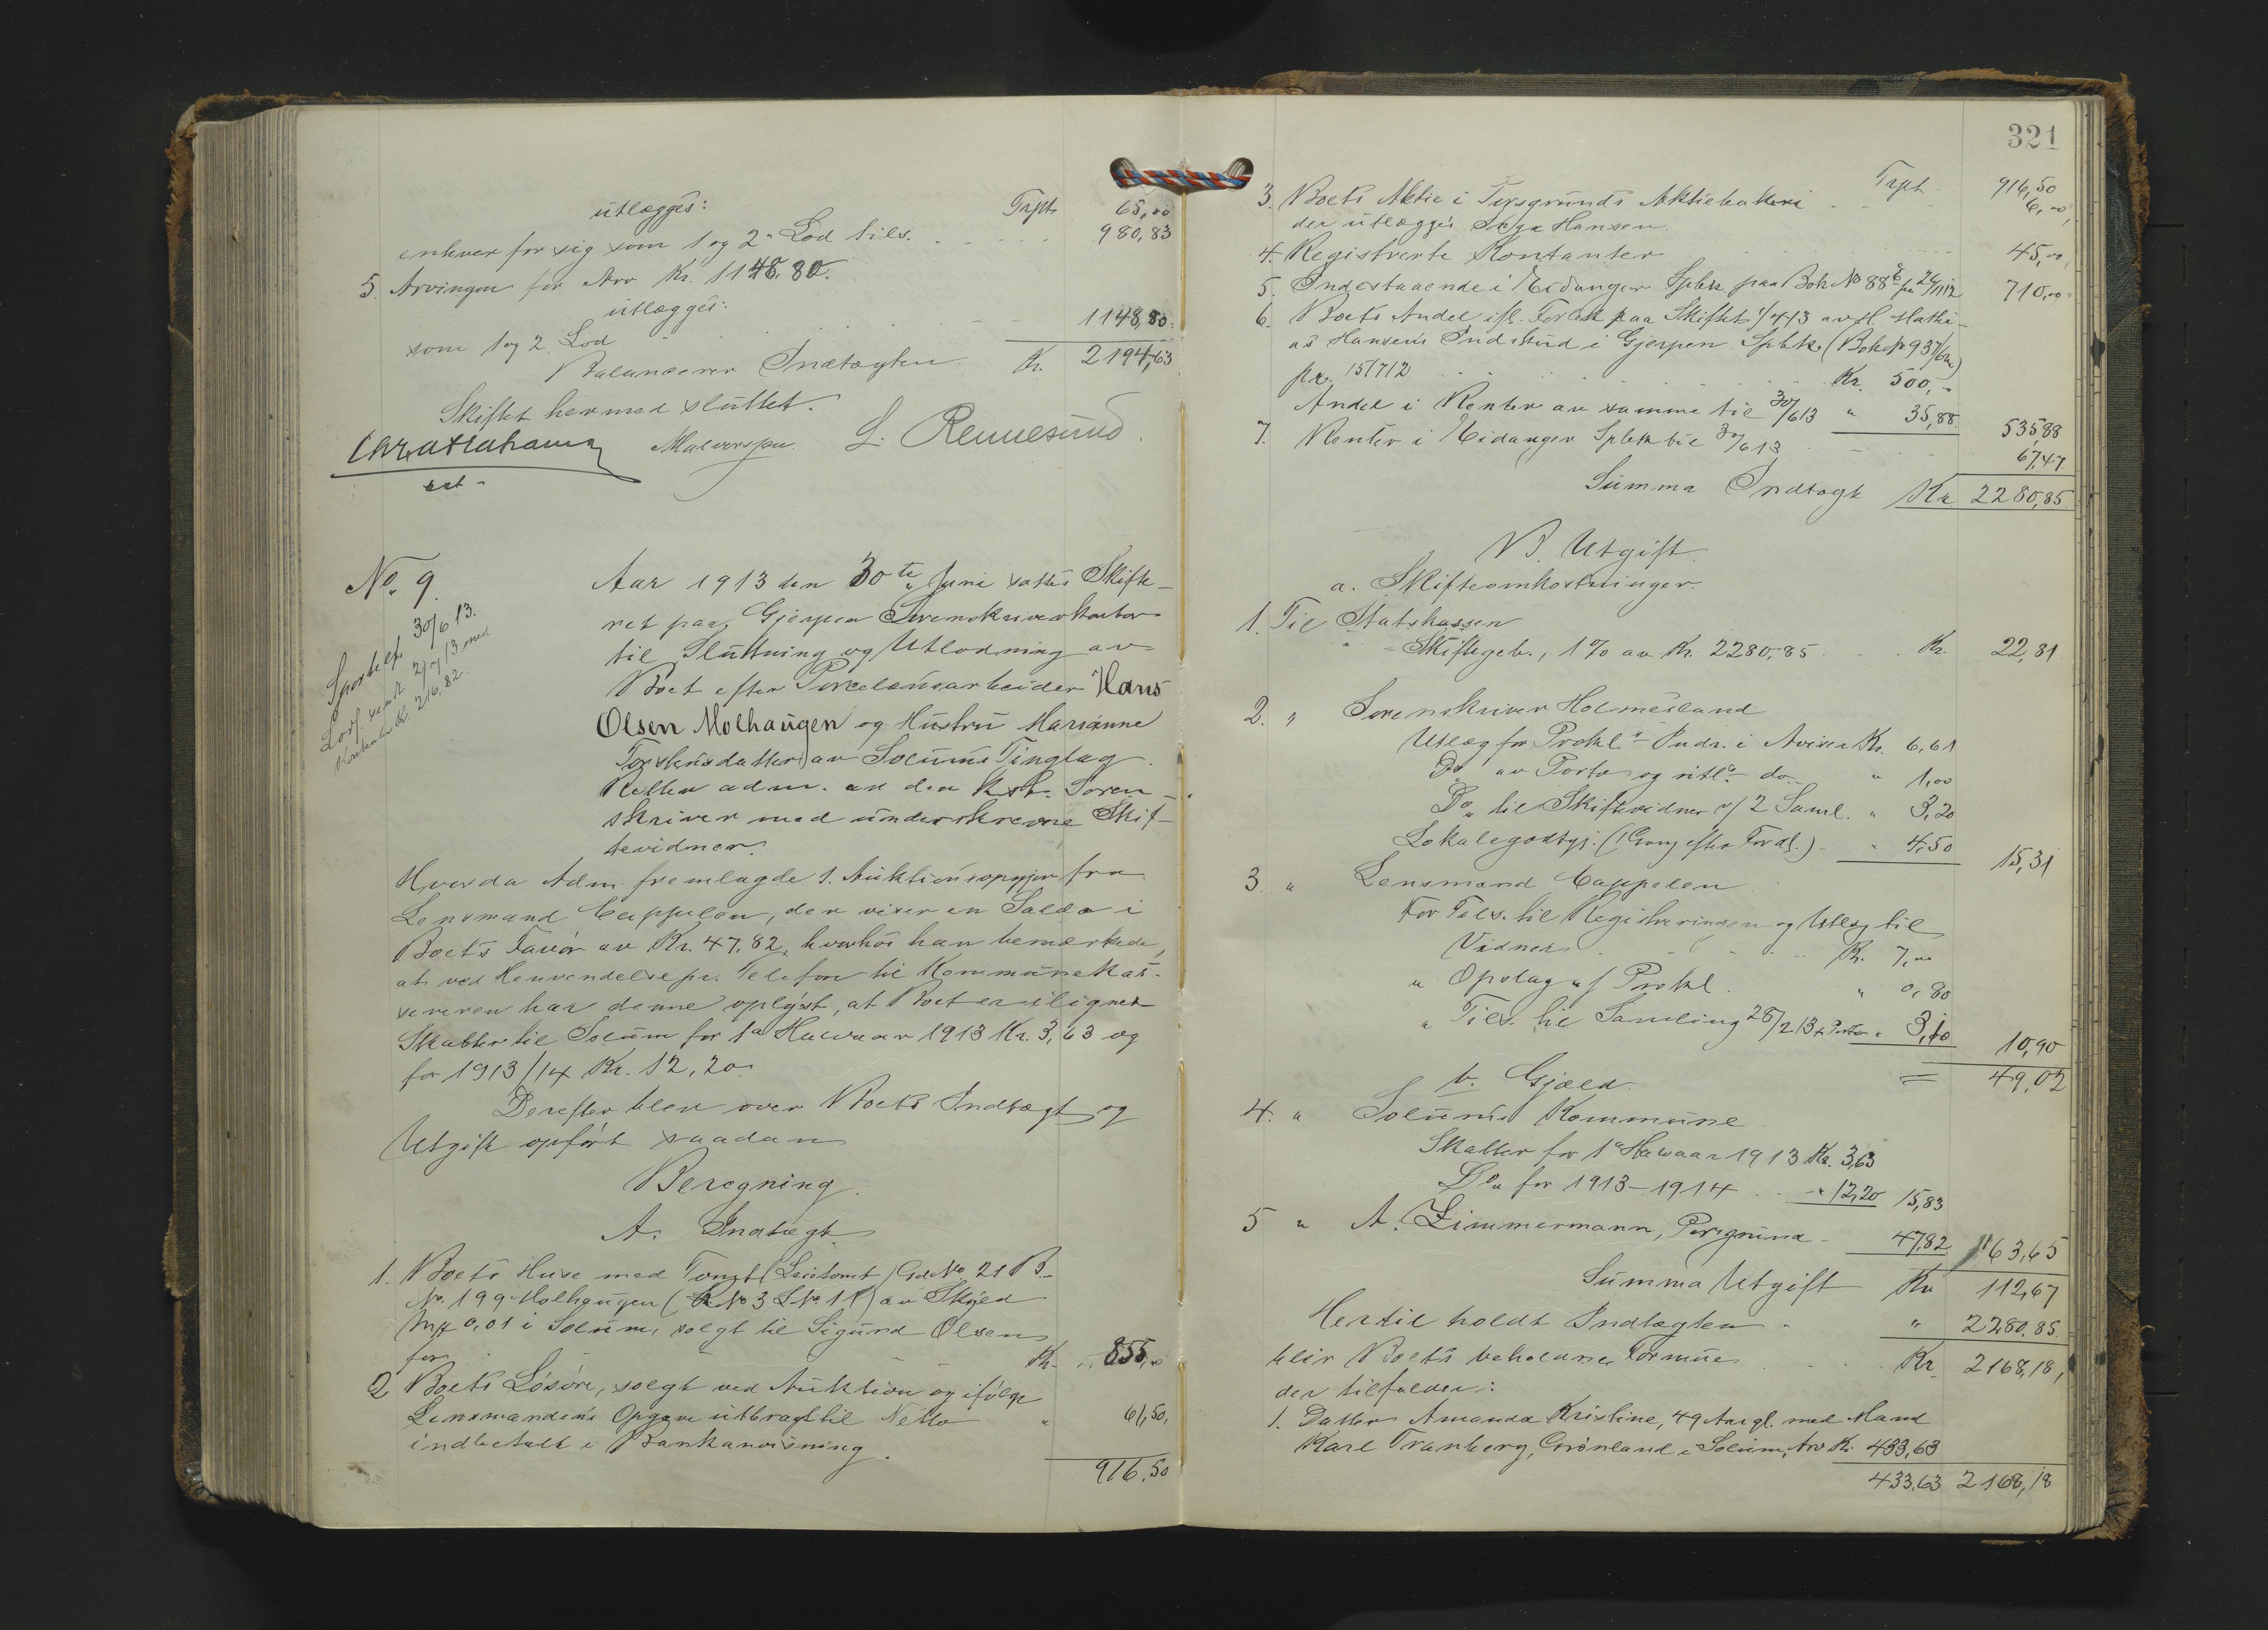 utlægges: Trpt. 65,00
enhver for sig som 1 og 2. Lod tils. 980,83
5. Arvingen for Arv Kr. 1148.80.
utlægges:
som 1 og 2 Lod 1148,80
Balancerer Indtægten Kr. 2194,63
Skiftet hermed sluttet.
L. Rennesund.
No. 9.
Sportelpl. 30/6 13.
Aar 1913 den 30te Juni sattes Skifte-
ret paa Gjerpen Sorenskriverkontor
til Slutning og Utlodning av
Boet efter Porcelænsarbeider Hans
Olsen Molhaugen og Hustru Marianne
Torstensdatter av Solums Tinglag.
Retten adm. av den kst. Soren-
skriver med underskrevne Skif-
tevidner.
Hvorda Adm. fremlagde 1. Auktionsopgjør fra
Lensmand Cappelen, der viser en Saldo i
Boets Favør av Kr. 47,82, hvorhos han bemærkede,
at ved Henvendelse pr. Telefon til Kommunekas-
sereren har denne oplyst, at Boet er ilignet
Skatter til Solum for 1ste Halvaar 1913 Kr. 3,63 og
for 1913/14 Kr. 12,20.
Derefter blev over Boets Indtægt og
Utgift opført saadan
Beregning.
A. Indtægt
1. Boets Huse med Tomt (Leietomt) Gde No 21 B-
No. 199 Molhaugen (R No 3 L No. 11) av Skyld
Mk 0,01 i Solum, solgt til Sigurd Olsen
for Kr. 855,00
2 Boets Løsøre, solgt ved Auktion og ifølge
Lensmandens Opgave utbragt til Netto " 61,50,
indbetalt i Bankanvisning.
916,50
321
Trpt. 916,50
3. Boets Aktie i Porsgrunds Aktiebakeri 6,00,
der utlægges Helga Hansen.
4. Registrerte Kontanter 45,00,
5. Indestaaende i Eidanger Spbk. paa Bok No 88 pr 26/11 12 710,00
6. Boets Andel ifl. Forlik paa Skiftet 1/4 13 av H. Mathi-
as Hansens Indskud i Gjerpen Spbk. (Bok No 937/6)
pr. 15/7 12 Kr. 500,-
Andel i Renter av samme til 30/6 13 " 35,88 535,88
7. Renter i Eidanger Spbk til 30/6 13 67,47
Summa Indtægt Kr 2280,85
B. Utgift
a. Skifteomkostninger.
1. Til Statskassen
Skiftegeb., 1% av Kr. 2280,85 Kr. 22,81
2. " Sorenskriver Holmesland
Utlæg for Prokl. Indr. i Aviser Kr. 6,61
Do. av Porto og do. " 1,00
Do. til Skiftevidner v/ 2 Saml. " 3,20
Lokalegodtgj. (1 Gang efter Fordl.) - " 4,50 15,31
3. " Lensmand Cappelen
For Tils. til Registreringen og Utlæg til
Vidner Kr. 7,00
" Opslag af Prokl. " 0,80
" Tils. til Samling 28/2 13 + Porto " 3,10 10,90
49,02
b. Gjæld.
4. " Solums Kommune
Skatter for 1ste Halvaar 1913 Kr. 3,63
Do. for 1913-1914 " 12,20 15,83
5 " A. Zimmermann, Porsgrund - 47,82 63,65
Summa Utgift Kr 112,67
Hertil holdt Indtægten " 2280.85.
blir Boets beholdne Formue Kr 2168,18,
der tilfalder:
1. Datter Amanda Kristine, 49 Aar gl. med Mand
Karl Tranberg, Grønland i Solum, Arv Kr. 433,63
433,63 2168,18